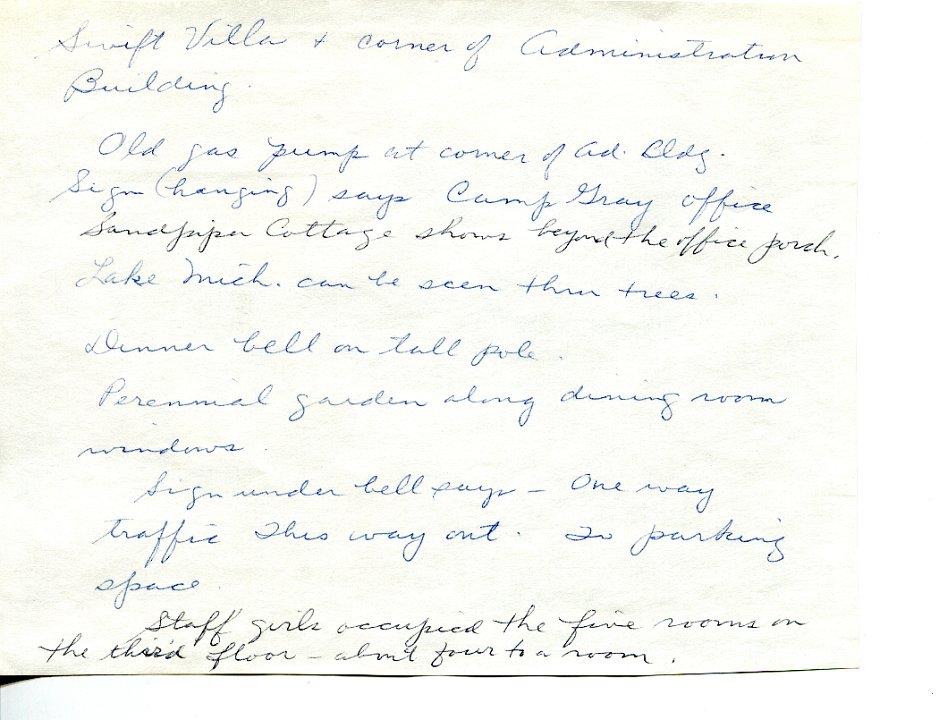 Swift Villa + corner of Administration
Building.
Old gas pump at corner of Ad. Bldg.
Sign (hanging) says Camp Gray office
Sandpiper Cottage shows beyond the office porch.
Lake Mich. can be seen thru trees.
Dinner bell on tall pole.
Perennial garden along dining room
windows.
Sign under bell says - One way
traffic This way out. To parking
space.
Staff girls occupied the five rooms on
the third floor - about four to a room.